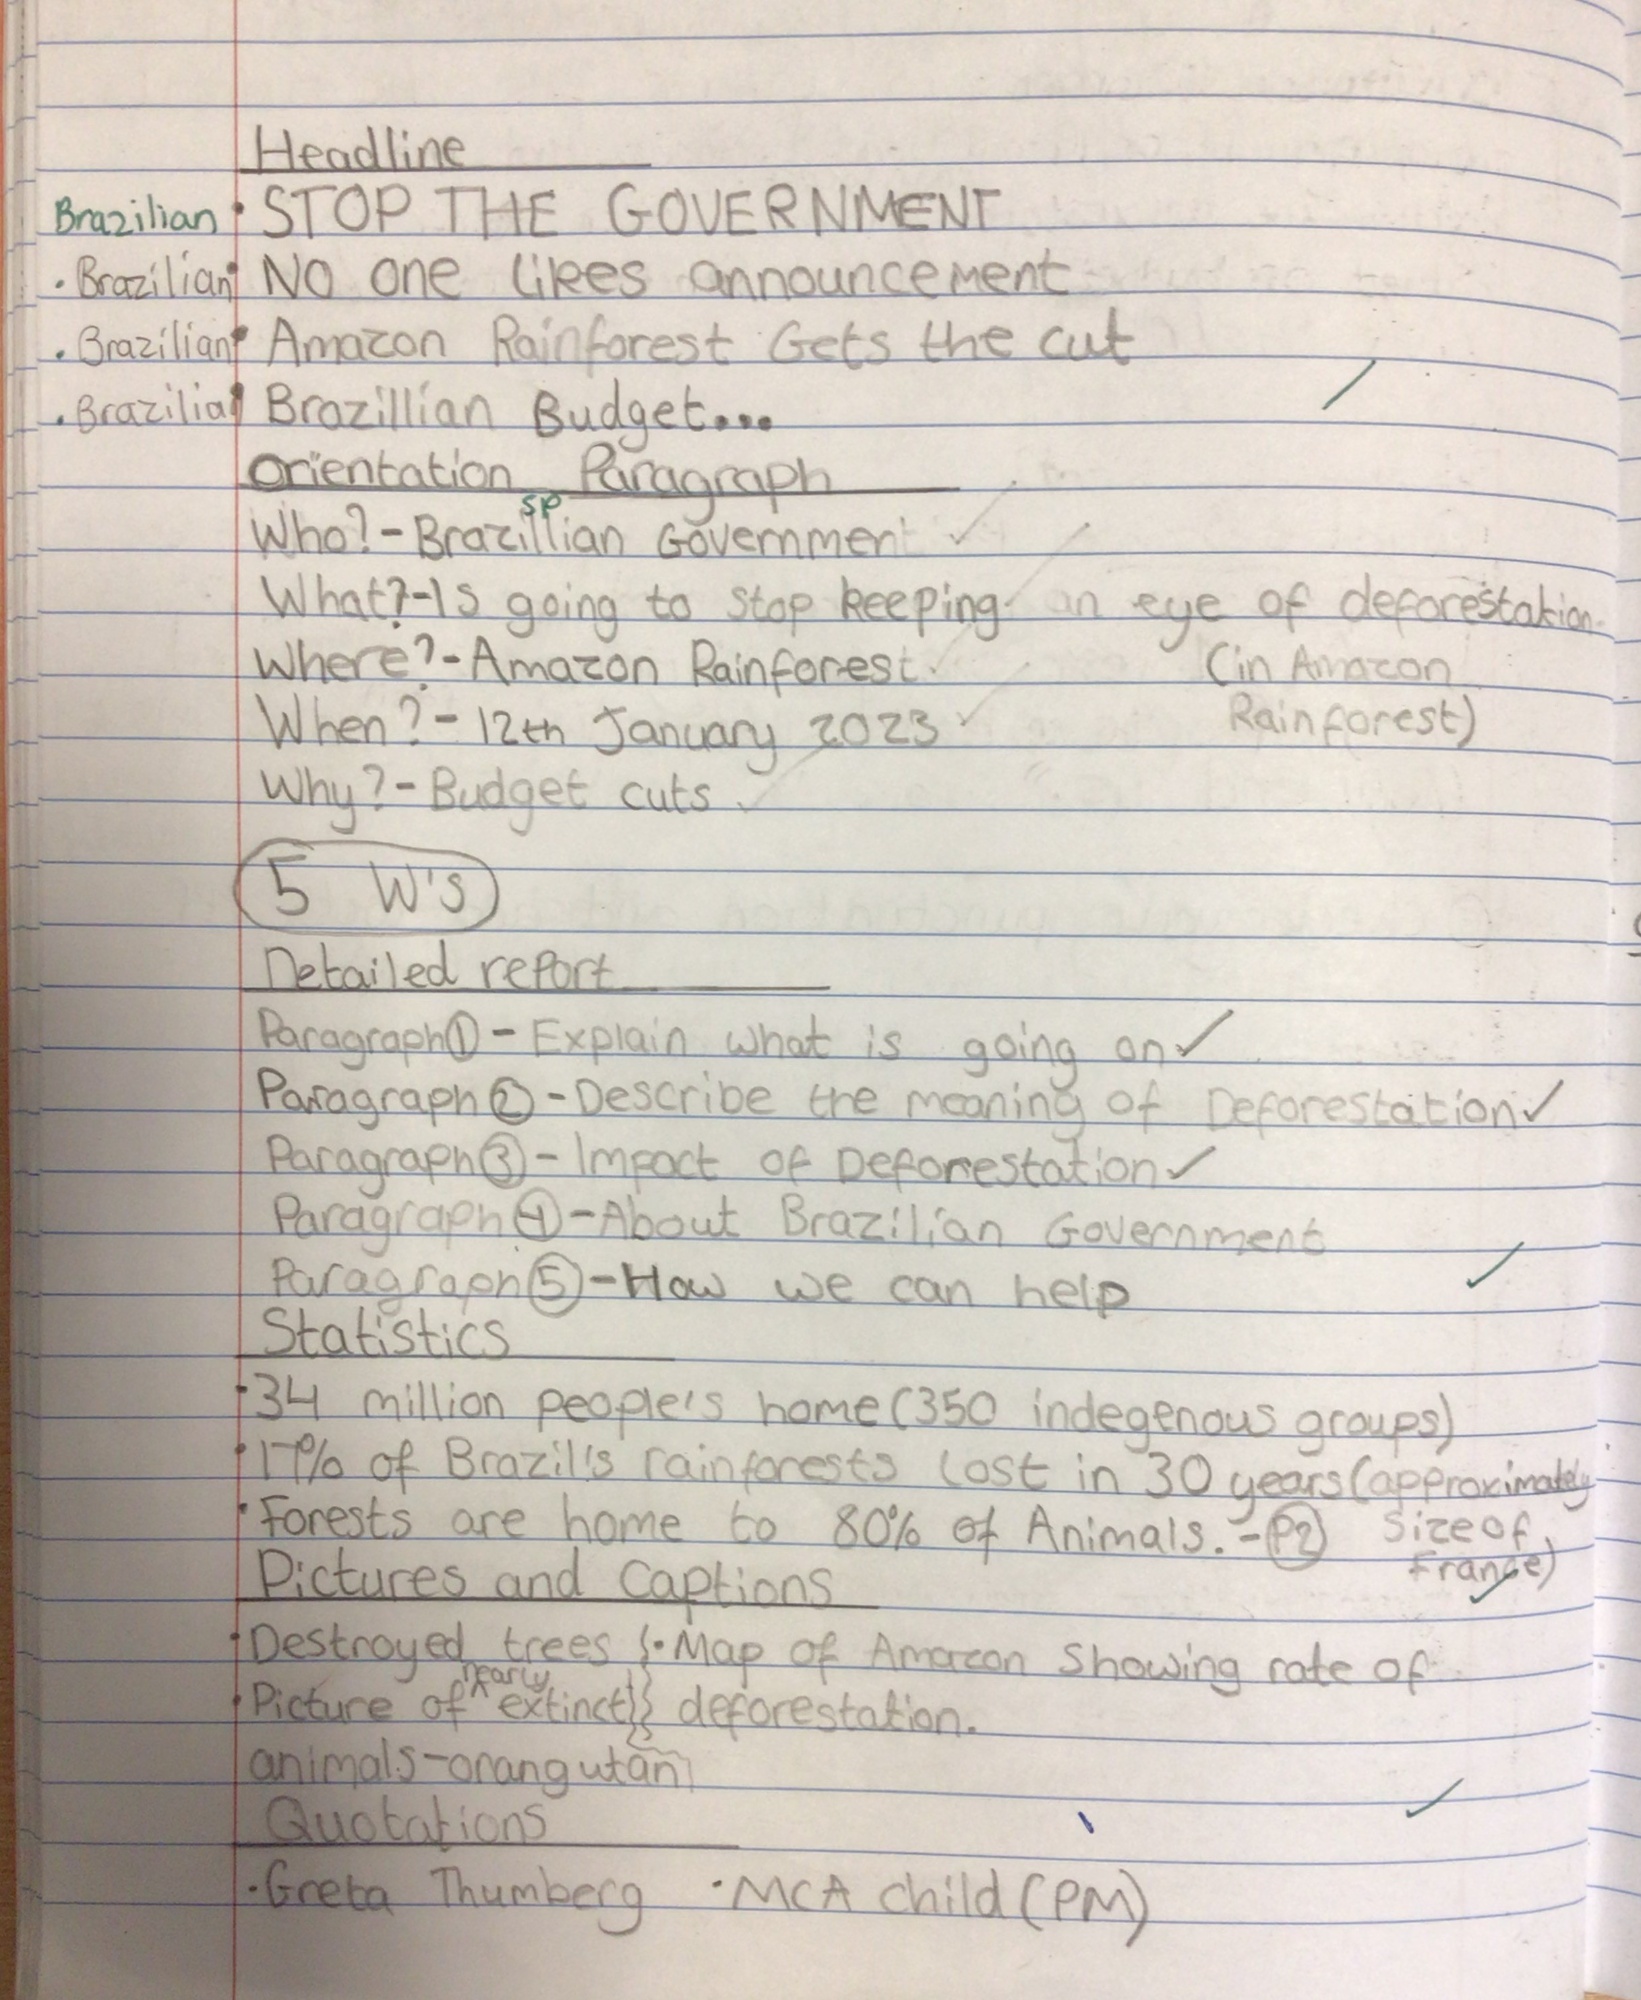 Headline
Brazilian • STOP THE GOVERNMENT
• Brazilian • No one likes announcement
• Brazilian • Amazon Rainforest Gets the cut
• Brazilian • Brazillian Budget...
Orientation Paragraph
sp
Who? - Brazillian Government ✓
What? - Is going to stop keeping an eye of deforestation
Where? - Amazon Rainforest. (in Amazon
When? - 12th January 2023 ✓ Rainforest)
Why? - Budget cuts ✓
5 W's
Detailed report
Paragraph ① - Explain what is going on ✓
Paragraph ② - Describe the meaning of Deforestation ✓
Paragraph ③ - Impact of Deforestation ✓
Paragraph ④ - About Brazilian Government
Paragraph ⑤ - How we can help
Statistics
• 34 million people's home (350 indegenous groups)
• 17% of Brazil's rainforests lost in 30 years (approximately
• Forests are home to 80% of Animals. - P2 size of
France)
Pictures and Captions
• Destroyed trees {• Map of Amazon showing rate of
nearly
• Picture of ^ extinct} deforestation.
animals - orangutan
Quotations
• Greta Thumberg • MCA child (PM)